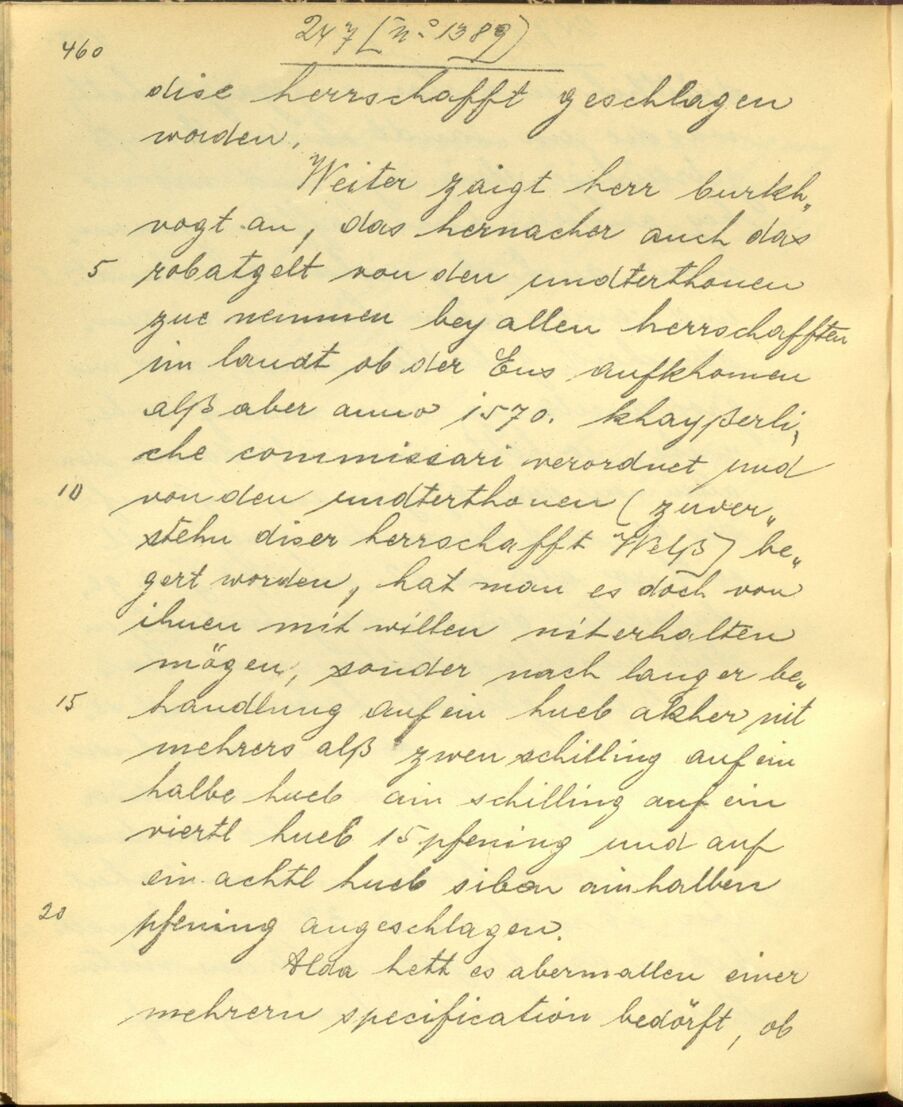 460
247 [n° 1389]
dise herrschafft geschlagen
worden.
Weiter zaigt herr burkh„
vogt an, das hernacher auch das
5 robatgelt von den undterthonen
zue nemmen bey allen herrschafften
im landt ob der Ens aufkhomen
alß aber anno 1570. khayßerli„
che commissari verordnet und
10 von den undterthonen (zuver„
stehn diser herrschafft Welß) be„
gert worden, hat man es doch von
ihnen mit willen nit erhalten
mögen, sonder nach langer be„
15 handlung auf ein hueb akher nit
mehrers alß zwen schilling auf ein
halbe hueb ain schilling auf ein
viertl hueb 15 pfening und auf
ein achtl hueb siben ainhalben
20 pfening angeschlagen.
Alda hett es abermallen einer
mehrern specification bedörft, ob